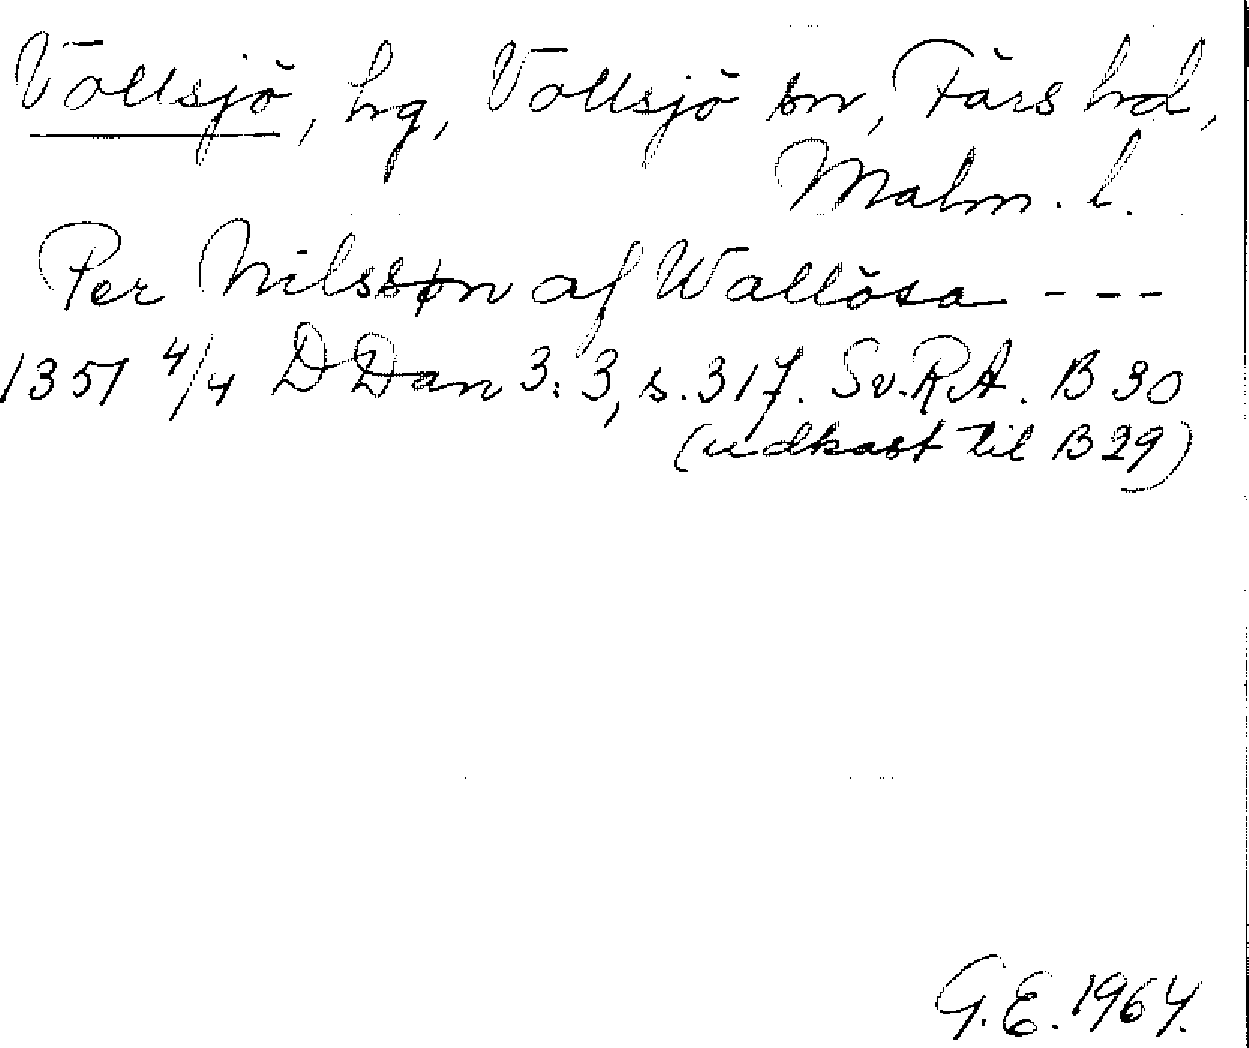 Vollsjö, hg, Vollsjö sn, Färs hd,
Malm. l.
Per Nilssøn af Wallösa ---
1351 4/4 DDan 3:3, s. 317. Sv. RA. B 30
(udkast til B 29)
G.E. 1964.